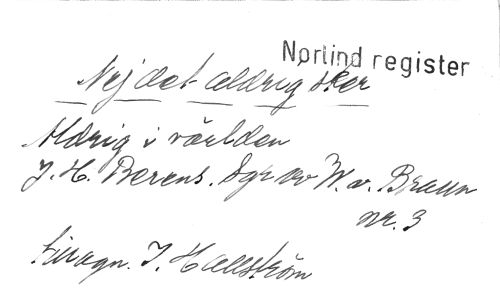 Norlind register
Nej det aldrig sker
Aldrig i världen
J. H. Berens. Dgr av W. v. Braun
nr. 3
J. Hallström